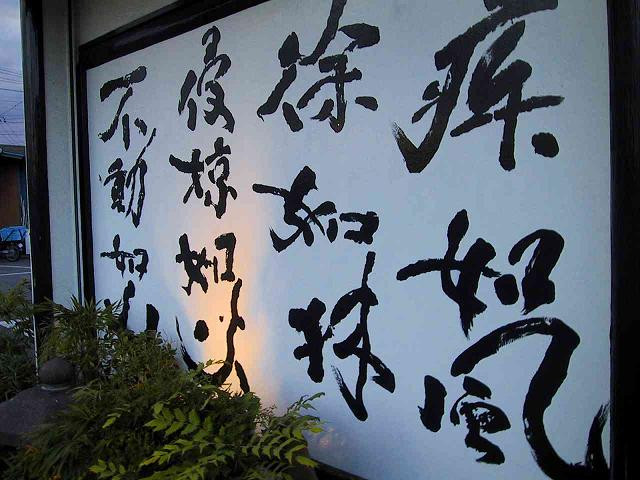 疾如風
徐如林
侵掠如火
不動如山